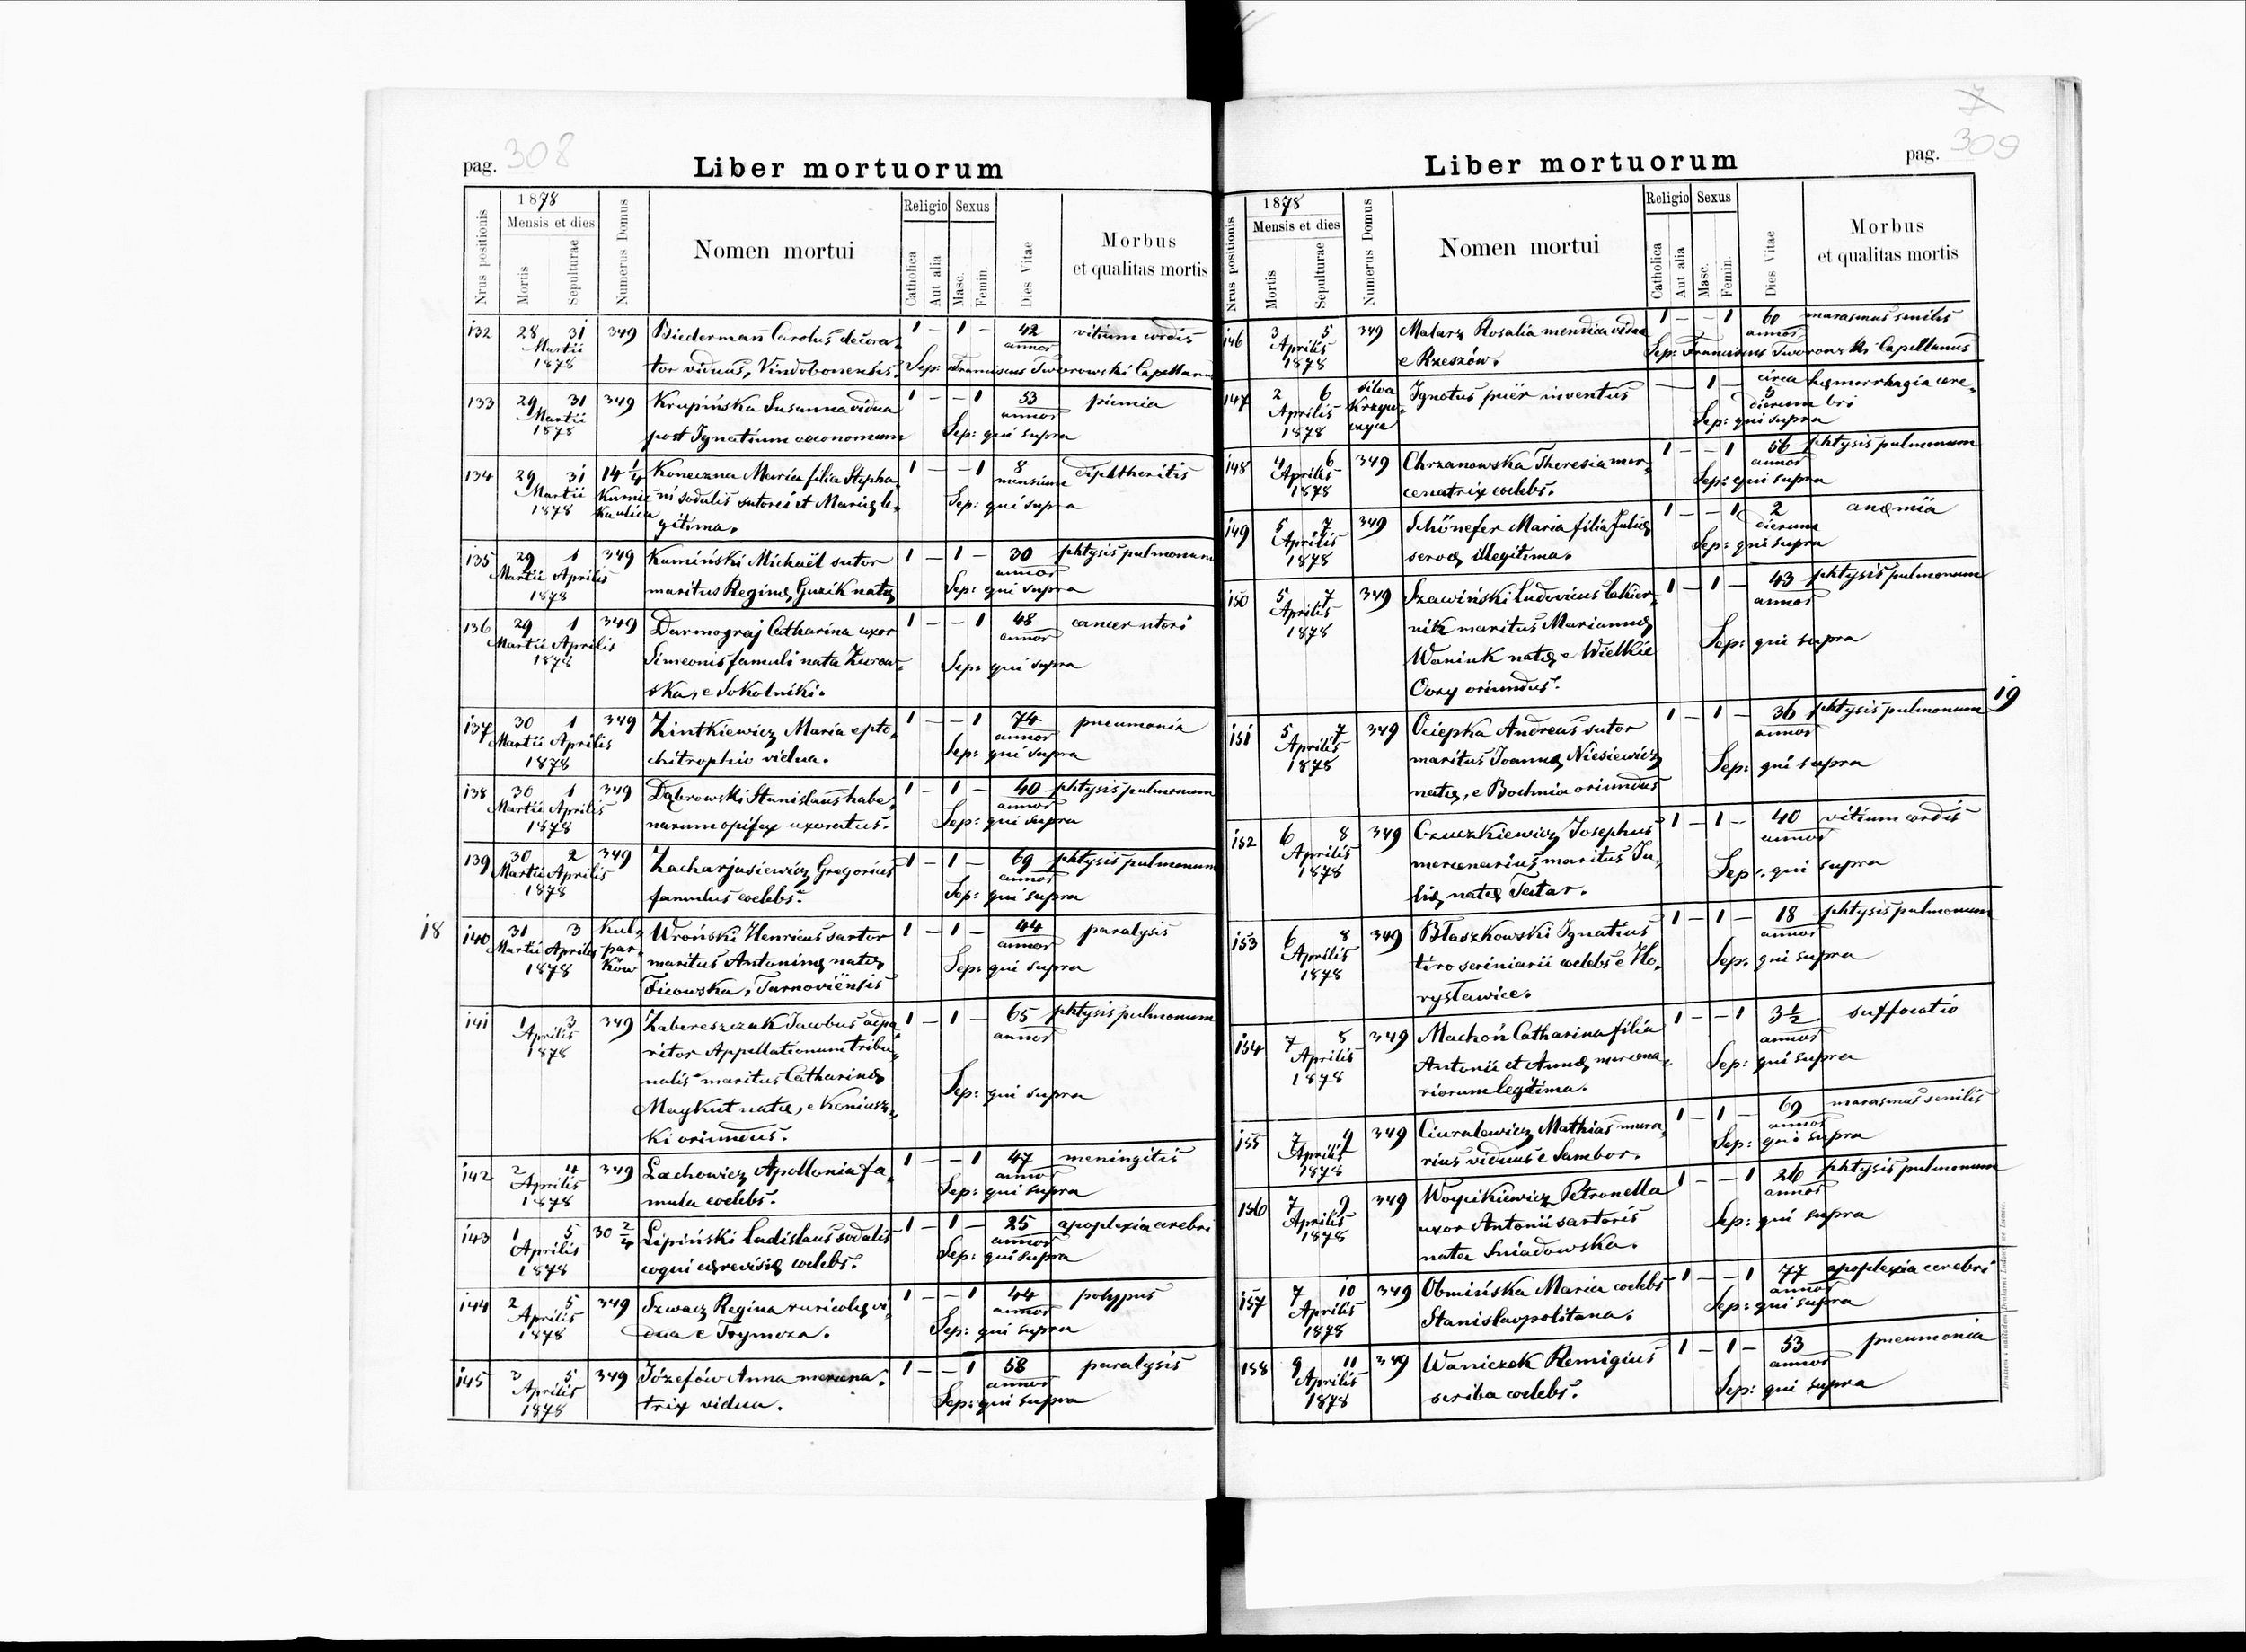 pag. 308
Liber mortuorum
Nrus positionis
1878
Mensis et dies
Mortis
Sepulturae
Numerus Domus
Nomen mortui
Religio
Catholica
Aut alia
Sexus
Masc.
Femin.
Dies Vitae
Morbus
et qualitas mortis
132 28 31 349 Biederman Carolus decora- 1 – 1 – 42 vitium cordis
Martii annor
1878 tor viduus, Vindobonensis. Sep: Franciscus Tworowski Capellanus
133 29 31 349 Krupińska Susanna vidua 1 – – 1 53 piemia
Martii annor
1878 post Ignatium oeconomum Sep: qui supra
134 29 31 14 1/4 Koneczna Maria filia Stepha- 1 – – 1 8 diphtheritis
Martii ni sodalis sutoris et Mariae le- mensium
1878 gitima. Sep: qui supra
135 29 1 349 Kamiński Michaël sutor 1 – 1 – 30 phtysis pulmonum
Martii Aprilis annor
1878 maritus Reginae Guzik natae Sep: qui supra
136 29 1 349 Darmograj Catharina uxor 1 – – 1 48 cancer uteri
Martii Aprilis annor
1878 Simeonis famuli nata Zurow- Sep: qui supra
ska, e Sokolniki.
137 30 1 349 Zintkiewicz Maria e pto- 1 – – 1 74 pneumonia
Martii Aprilis annor
1878 chitrophio vidua. Sep: qui supra
138 30 1 349 Dąbrowski Stanislaus habe- 1 – 1 – 40 phtysis pulmonum
Martii Aprilis annor
1878 narum opifex uxoratus. Sep: qui supra
139 30 2 349 Zacharjasiewicz Gregorius 1 – 1 – 69 phtysis pulmonum
Martii Aprilis annor
1878 famulus coelebs. Sep: qui supra
18 140 31 3 Kul- Wroński Henricus sartor 1 – 1 – 44 paralysis
Martii Aprilis par- maritus Antoninae natae annor
1878 ków Ficowska, Tarnoviënsis Sep: qui supra
141 1 3 349 Zabereszczak Jacobus adpa- 1 – 1 – 65 phtysis pulmonum
Aprilis ritor Appellationum tribu- annor
1878 nalis maritus Catharinae
Maykut natae, e Koniusz- Sep: qui supra
ki oriundus.
142 2 4 349 Lachowicz Apollonia fa- 1 – – 1 47 meningitis
Aprilis annor
1878 mula coelebs. Sep: qui supra
143 1 5 30 2/4 Lipiński Ladislaus sodalis 1 – 1 – 25 apoplexia cerebri
Aprilis annor
1878 coqui cerevisiae coelebs. Sep: qui supra
144 2 5 349 Szwacz Regina ruricolae vi- 1 – – 1 44 polypus
Aprilis annor
1878 dua e Sep: qui supra
145 3 5 349 Józefów Anna mercena- 1 – – 1 58 paralysis
Aprilis annor
1878 trix vidua. Sep: qui supra
7
pag. 309
Liber mortuorum
Nrus positionis
1878
Mensis et dies
Mortis
Sepulturae
Numerus Domus
Nomen mortui
Religio
Catholica
Aut alia
Sexus
Masc.
Femin.
Dies Vitae
Morbus
et qualitas mortis
146 3 5 349 Malarz Rosalia mendica vidua 1 – – 1 60 marasmus senilis
Aprilis annor
1878 e Rzeszów. Sep: Franciscus Tworowski Capellanus
147 2 6 silva Ignotus puër inventus – 1 – circa haemorrhagia cere-
Aprilis 5 dierum bri
1878 Sep: qui supra
148 4 6 349 Chrzanowska Theresia mer- 1 – – 1 56 phtysis pulmonum
Aprilis annor
1878 cenatrix coelebs. Sep: qui supra
149 5 7 349 Schönefer Maria filia Juliae 1 – – 1 2 anaemia
Aprilis dierum
1878 servae illegitima. Sep: qui supra
150 5 7 349 Szawiński Ludovicus lakier- 1 – 1 – 43 phtysis pulmonum
Aprilis nik maritus Mariannae annor
1878 Waniuk natae e Wielkie Sep: qui supra
Oczy oriundus.
19
151 5 7 349 Ociepka Andreas sutor 1 – 1 – 36 phtysis pulmonum
Aprilis maritus Joannae Niesiewicz annor
1878 natae, e Bochnia oriundus Sep: qui supra
152 6 8 349 Czuczkiewicz Josephus 1 – 1 – 40 vitium cordis
Aprilis mercenarius, maritus Ju- annor
1878 liae natae Tatar. Sep: qui supra
153 6 8 349 Błaszkowski Ignatius 1 – 1 – 18 phtysis pulmonum
Aprilis tiro scriniarii coelebs e Ho- annor
1878 rysławice. Sep: qui supra
154 7 8 349 Machoń Catharina filia 1 – – 1 3 1/2 suffocatio
Aprilis Antonii et Annae mercena- annor
1878 riorum legitima. Sep: qui supra
155 7 9 349 Ciuralewicz Mathias mura- 1 – 1 – 69 marasmus senilis
Aprilis annor
1878 rius viduus e Sambor. Sep: qui supra
156 7 9 349 Woycikiewicz Petronella 1 – – 1 26 phtysis pulmonum
Aprilis uxor Antonii sartoris annor
1878 nata Sniadowska. Sep: qui supra
157 7 10 349 Obmińska Maria coelebs 1 – – 1 77 apoplexia cerebri
Aprilis annor
1878 Stanislaopolitana. Sep: qui supra
158 9 11 349 Waniczek Remigius 1 – 1 – 53 pneumonia
Aprilis annor
1878 scriba coelebs. Sep: qui supra